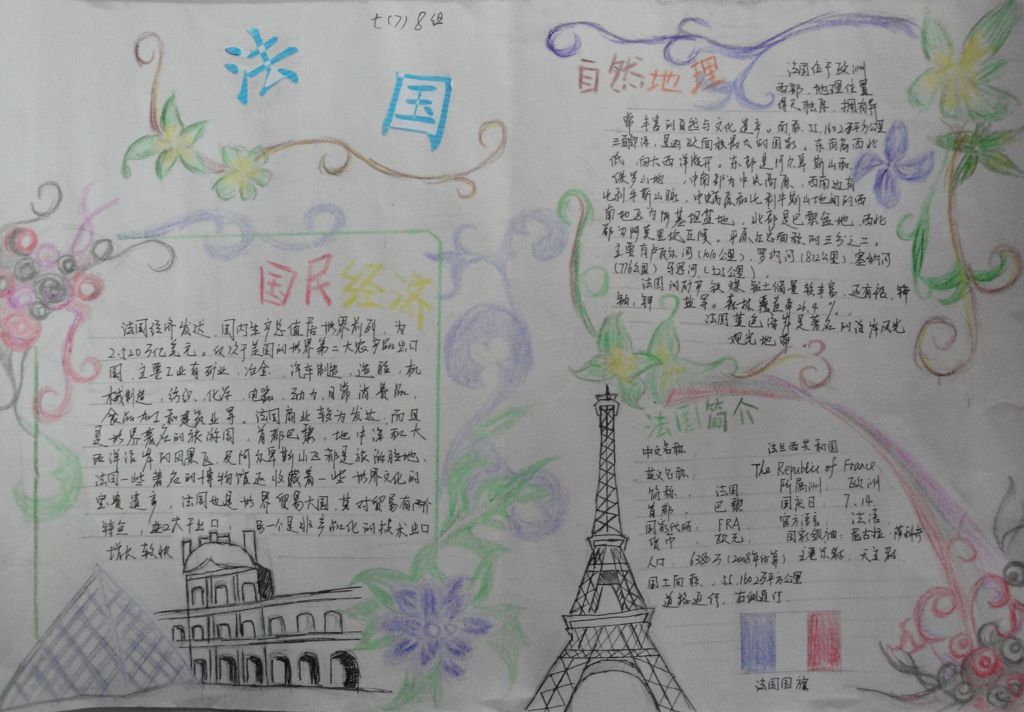 七(7) 8组
法国
国民经济
法国经济发达，国内生产总值居世界前列，为
2.520万亿美元。仅次于美国的世界第二大农产品出口
国，主要工业有矿业，冶金，汽车制造，造船，机
械制造，纺织，化学，电器，动力，日常消费品，
食品加工和建筑业等。法国商业较为发达，而且
是世界著名的旅游国，首都巴黎，地中海和大
西洋沿岸的风景区及阿尔卑斯山区都是旅游胜地，
法国一些著名的博物馆还收藏着一些世界文化的
宝贵遗产，法国也是世界贸易大国，其对贸易有两个
特点，进口大于出口，另一个是非产品化的技术出口
增长较快
自然地理
法国位于欧洲
西部，地理位置
得天独厚，拥有异
常丰富的自然与文化遗产。面积55.1602万平方公里
三面临海，是西欧面积最大的国家。东南高西北
低，向大西洋敞开。东部是阿尔卑斯山脉
侏罗山地，中南部为中央高原，西南边有
比利牛斯山脉，中央高原和比利牛斯山地间的西
南地区为阿基坦盆地，北部是巴黎盆地，西北
部为阿莫里坎丘陵。平原占总面积的三分之二。
主要有卢瓦尔河(1010公里)，罗纳河(812公里)，塞纳河
(776公里)
法国的矿产铁，煤，铝土储量较丰富，还有铀，锌
盐等。森林覆盖率26.4%。
法国蓝色海岸是著名的沿岸风光
观光地带。
法国简介
中文名称： 法兰西共和国
英文名称： The Republic of France
简称： 法国 所属洲： 欧洲
首都： 巴黎 国庆日： 7.14
国家代码： FRA 官方语言： 法语
货币： 欧元 国家领袖：尼古拉·萨科齐
人口： 6380万(2008年估算) 主要宗教： 天主教
国土面积： 55.1602万平方公里
道路通行，右侧通行
法国国旗